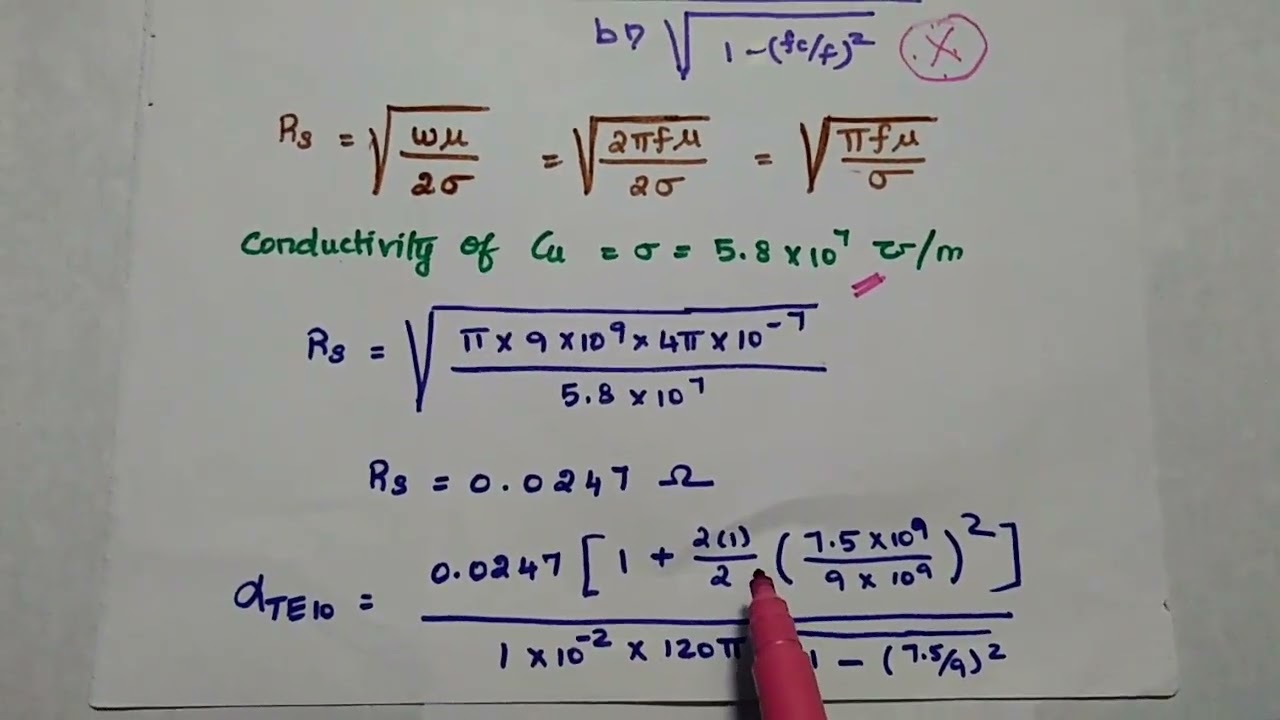 bη √(1-(fc/f)²) X
Rs = √(ωμ/2σ) = √(2πfμ/2σ) = √(πfμ/σ)
Conductivity of Cu = σ = 5.8 × 10⁷ ℧/m
Rs = √(π × 9 × 10⁹ × 4π × 10⁻⁷ / 5.8 × 10⁷)
Rs = 0.0247 Ω
αTE10 = 0.0247 [1 + 2(1)/2 (7.5 × 10⁹ / 9 × 10⁹)²] / 1 × 10⁻² × 120π √(1 - (7.5/9)²)